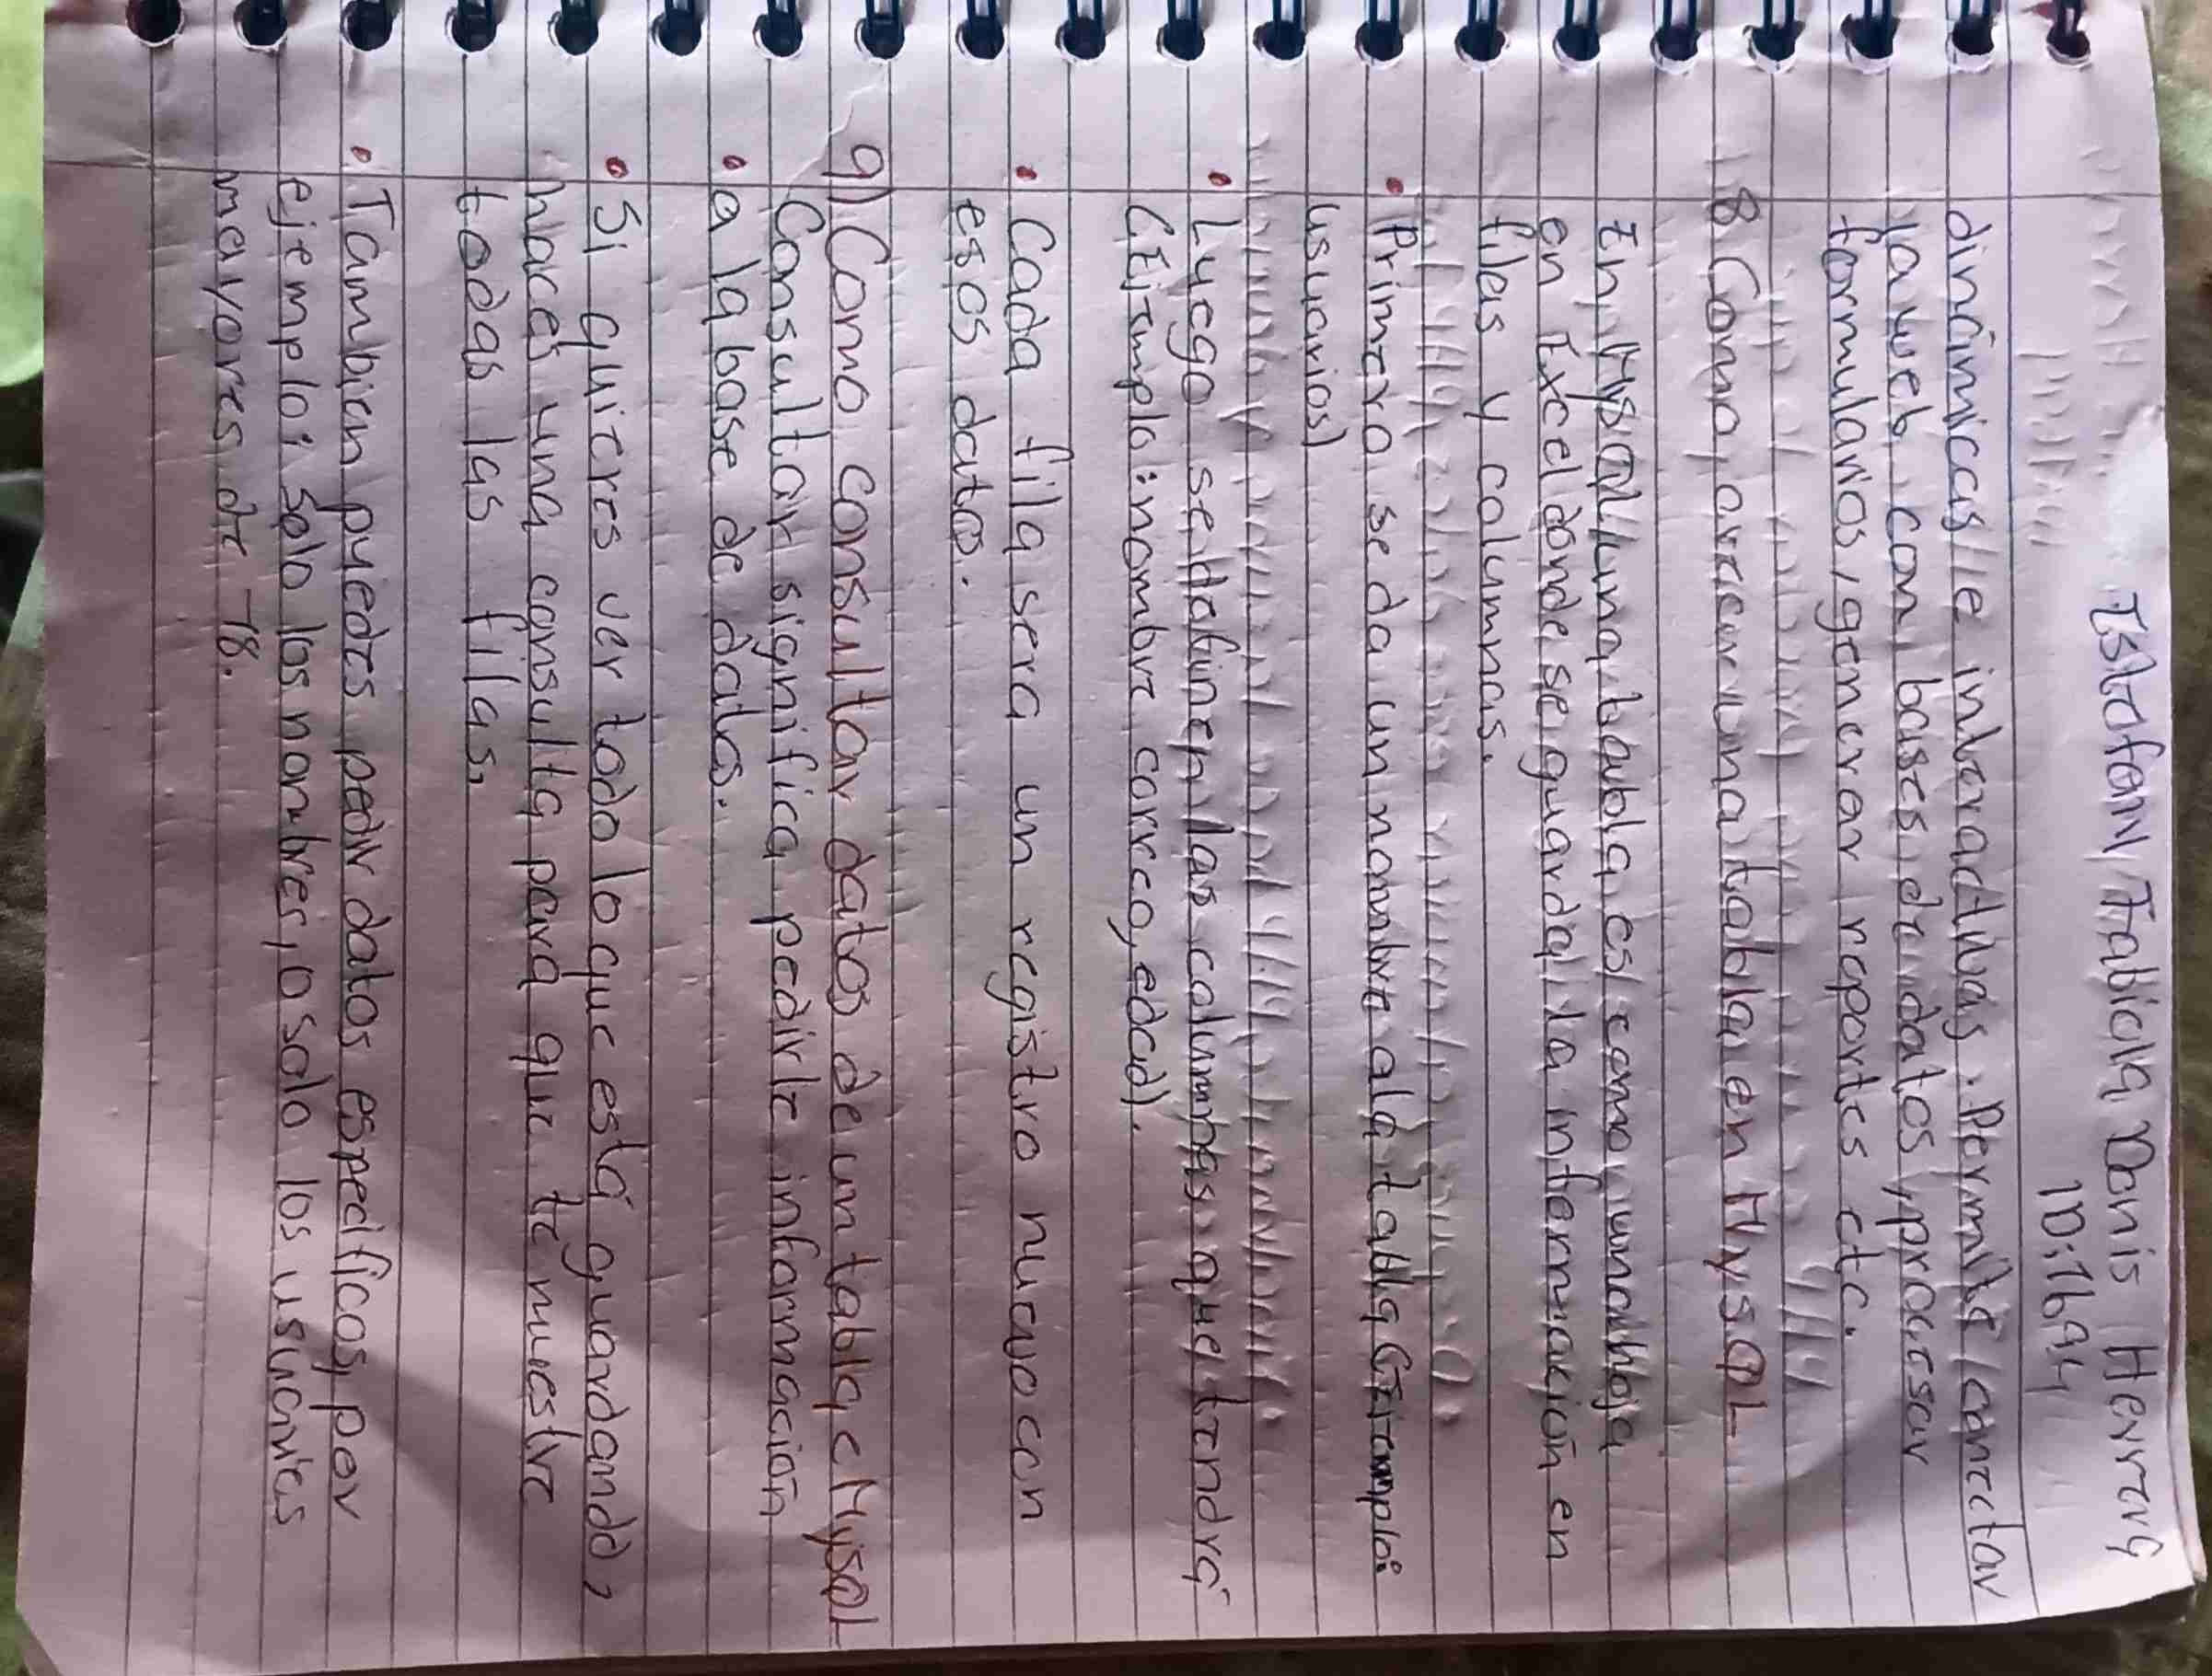 Estefany Fabiola Donis Herrera
ID:7694
dinámicas e interactivas. Permite conectar
la web con bases de datos, procesar
formularios, generar reportes etc.
8 Como crear una tabla en MySQL
En MySQL una tabla es como una hoja
en Excel donde se guarda la información en
filas y columnas.
• Primero se da un nombre a la tabla (Ejemplo:
usuarios)
• Luego se definen las columnas que tendrá
(Ejemplo: nombre, correo, edad).
• Cada fila sera un registro nuevo con
esos datos.
9) Como consultar datos de un tabla, e MySQL
Consultar significa pedirle información
• a la base de datos.
• Si quieres ver todo lo que está guardando,
haces una consulta para que te muestre
todas las filas.
• Tambien puedes pedir datos específicos, por
ejemplo: solo los nombres, o solo los usuarios
mayores de 18.